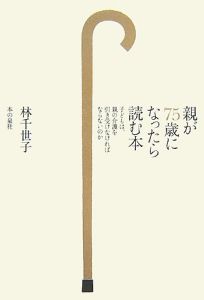 親が
75歳に
なったら
読む本
子どもは、
親の介護を
引き受けなければ
ならないのか
林千世子
本の泉社